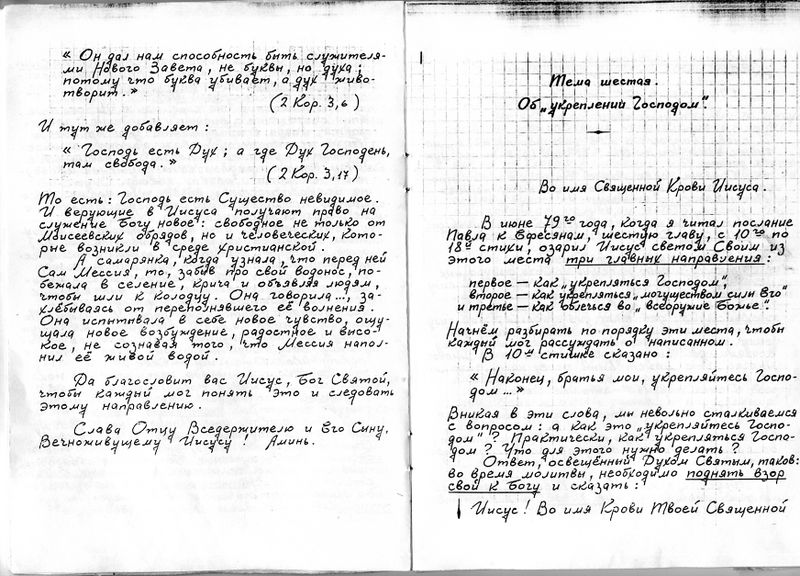 « Он дал нам способность быть служителя-
ми Нового Завета, не буквы, но духа;
потому что буква убивает, а дух живо-
творит. »
(2 Кор. 3,6)
И тут же добавляет:
« Господь есть Дух; а где Дух Господень,
там свобода. »
(2 Кор. 3,17)
То есть: Господь есть Существо невидимое.
И верующие в Иисуса получают право на
служение Богу новое: свободное не только от
Моисеевских обрядов, но и человеческих, кото-
рые возникли в среде христианской.
А самарянка, когда узнала, что перед ней
Сам Мессия, то, забыв про свой водонос, по-
бежала в селение, крича и объявляя людям,
чтобы шли к колодцу. Она говорила..., за-
хлёбываясь от переполнявшего её волнения.
Она испытывала в себе новое чувство, ощу-
щала новое возбуждение, радостное и высо-
кое, не сознавая того, что Мессия напол-
нил её живой водой.
Да благословит вас Иисус, Бог Святой,
чтобы каждый мог понять это и следовать
этому направлению.
Слава Отцу Вседержителю и Его Сыну,
Вечноживущему Иисусу! Аминь.
Тема шестая.
Об „укреплений Господом".
Во имя Священной Крови Иисуса.
В июне 79го года, когда я читал послание
Павла к Ефесянам, шестую главу, с 10го по
18й стихи, озарил Иисус светом Своим из
этого места три главных направления:
первое — как „укрепляться Господом",
второе — как укрепляться „могуществом силы Его"
и третье — как облечься во „всеоружие Божье".
Начнём разбирать по порядку эти места, чтобы
каждый мог рассуждать о написанном.
В 10м стишке сказано:
« Наконец, братья мои, укрепляйтесь Госпо-
дом...»
Вникая в эти слова, мы невольно сталкиваемся
с вопросом: а как это „укрепляйтесь Госпо-
дом"? Практически, как укрепляться Госпо-
дом? Что для этого нужно делать?
Ответ, освещённый Духом Святым, таков:
во время молитвы, необходимо поднять взор
свой к Богу и сказать:
Иисус! Во имя Крови Твоей Священной